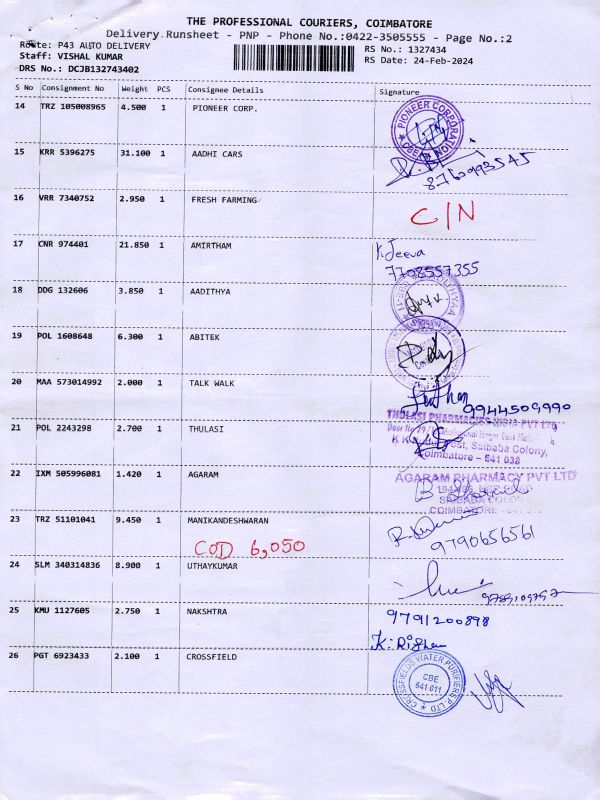 THE PROFESSIONAL COURIERS, COIMBATORE
Delivery Runsheet - PNP - Phone No.:0422-3505555 - Page No.:2
Route: P43 AUTO DELIVERY
Staff: VISHAL KUMAR
DRS No.: DCJB132743402
RS No.: 1327434
RS Date: 24-Feb-2024
S No Consignment No Weight PCS Consignee Details Signature
14 TRZ 105008965 4.500 1 PIONEER CORP.
PIONEER CORPORATION
15 KRR 5396275 31.100 1 AADHI CARS
16 VRR 7340752 2.950 1 FRESH FARMING
C/N
17 CNR 974401 21.850 1 AMIRTHAM
K. Jeeva
7708557355
18 DDG 132606 3.850 1 AADITHYA
19 POL 1608648 6.300 1 ABITEK
20 MAA 573014992 2.000 1 TALK WALK
9944509990
21 POL 2243298 2.700 1 THULASI
THULASI PHARMACIES INDIA PVT LTD
Saibaba Colony,
Coimbatore - 641 038
22 IXM 505996081 1.420 1 AGARAM
AGARAM PHARMACY PVT LTD
SAIBABA COLONY
COIMBATORE
23 TRZ 51101041 9.450 1 MANIKANDESHWARAN
COD 6,050
9790656561
24 SLM 340314836 8.900 1 UTHAYKUMAR
25 KMU 1127605 2.750 1 NAKSHTRA
9791200898
26 PGT 6923433 2.100 1 CROSSFIELD
CROSSFIELDS WATER PURIFIERS P. LTD
CBE
641 011